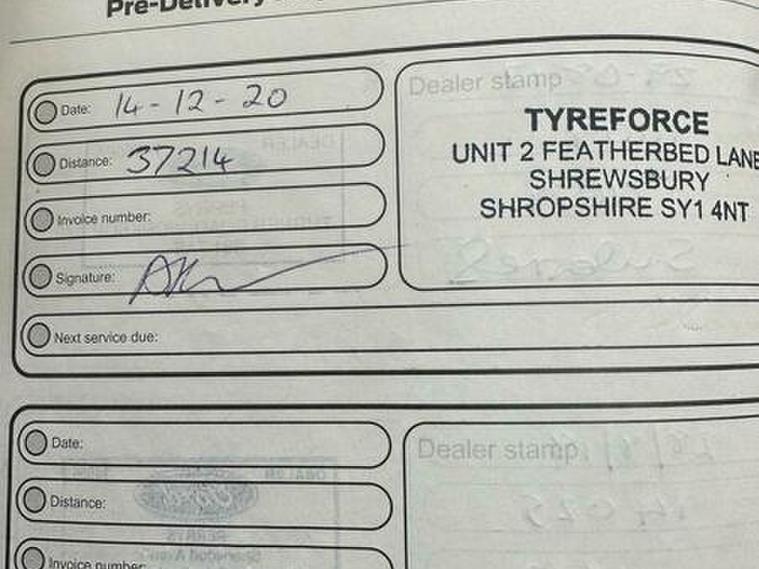 Pre-Delivery
Date: 14-12-20
Dealer stamp
TYREFORCE
UNIT 2 FEATHERBED LANE
SHREWSBURY
SHROPSHIRE SY1 4NT
Distance: 37214
Invoice number:
Signature:
Next service due:
Date:
Dealer stamp
Distance:
Invoice number: